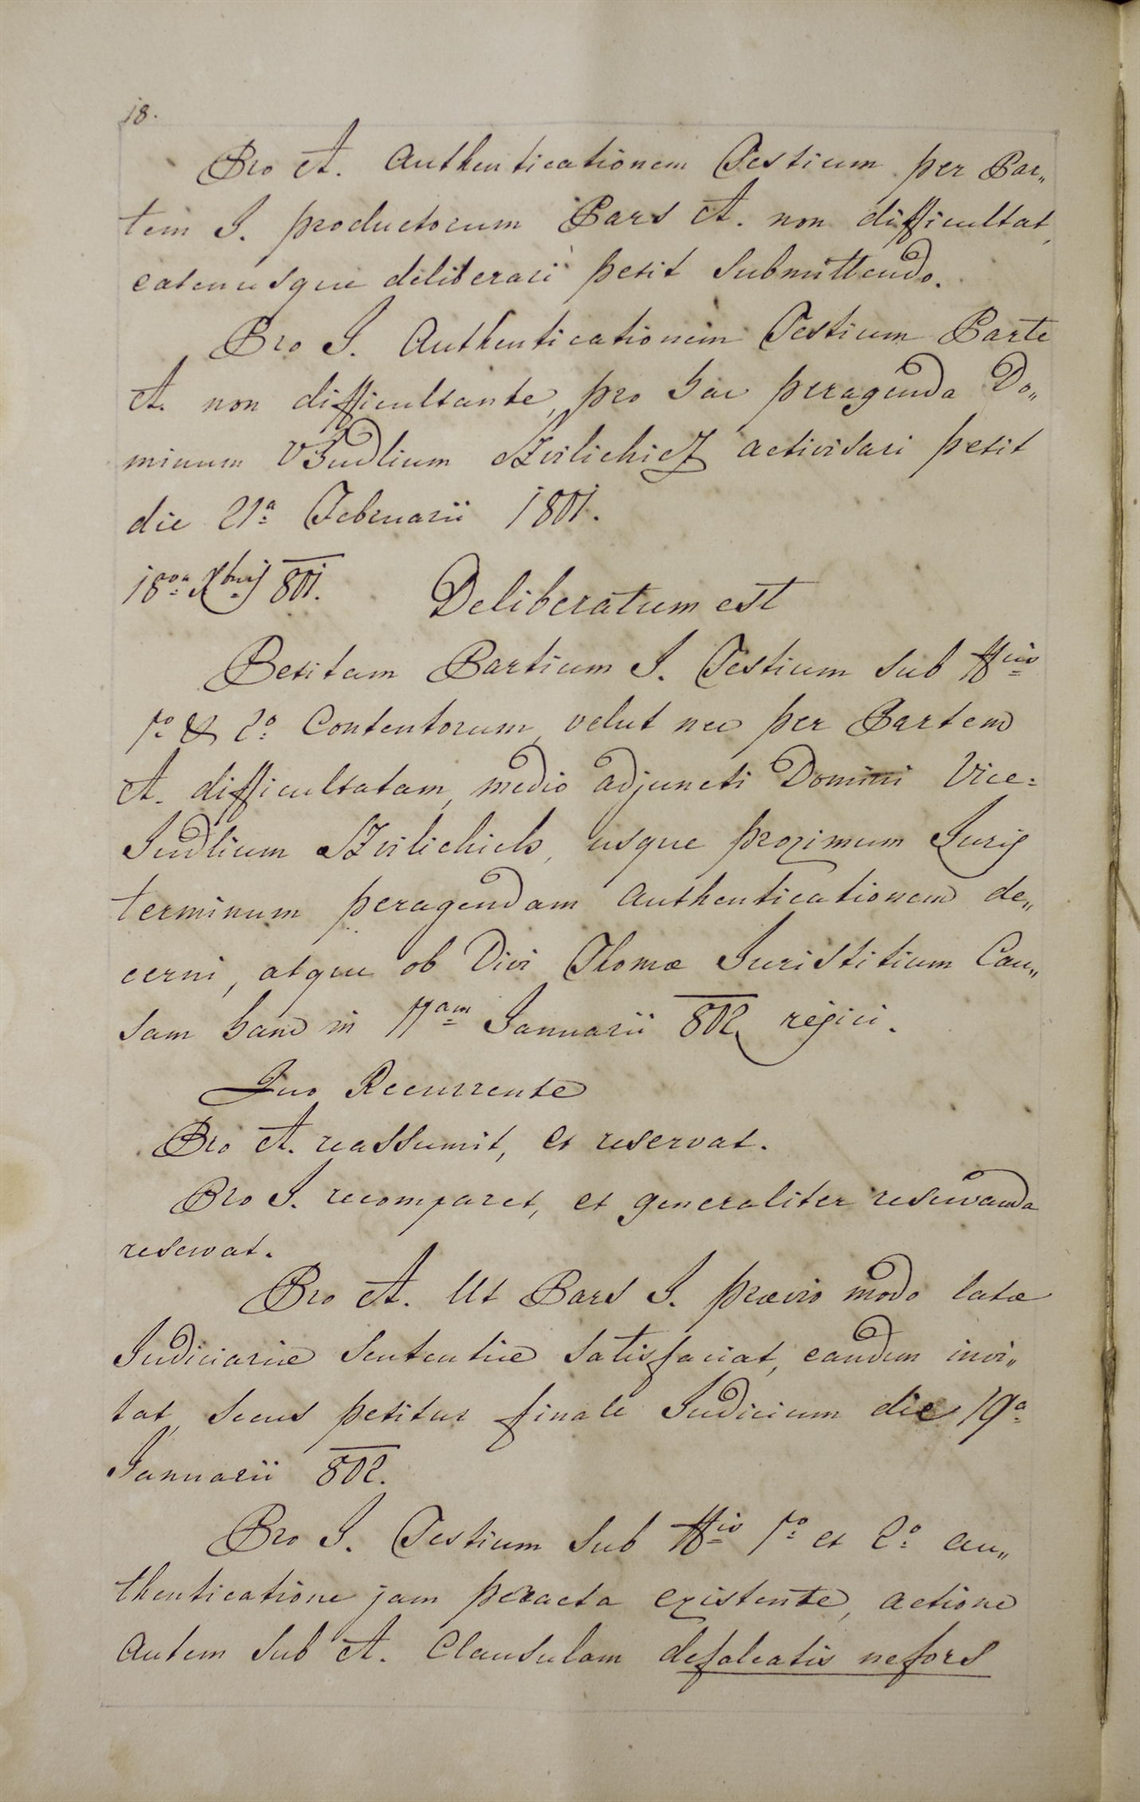 18.
Pro A. Authenticationem Testium per Par„
tem I. productorum Pars A. non difficultat,
eatenusque deliberari petit submittendo.
Pro I. Authenticationem Testium Parte
A. non difficultante, pro hac peragenda Do„
minum VJudlium activisari petit
die 21ª Februarii 1801.
18ª Xbris 801. Deliberatum est
Petitam Partium I. Testium sub Nris
1º & 2º Contentorum, velut nec per Partem
A. difficultatam, medio adjuncti Domini Vice=
Judlium usque proximum Juris
terminum peragendam Authenticationem de„
cerni, atque ob Divi Thomæ Juristitium Cau„
sam hanc in 11am Januarii 802 rejici.
Quo Recurrente
Pro A. reassumit, et reservat.
Pro I. recomparet, et generaliter reservanda
reservat.
Pro A. Ut Pars I. prævio modo latæ
Judiciariæ Sententiæ satisfaciat, eandem invi„
tat, secus petitur finale Judicium die 19ª
Januarii 802.
Pro I. Testium sub Nris 1º et 2º au„
thenticatione jam peracta existente, actione
autem sub A. Clausulam defalcatis nefors